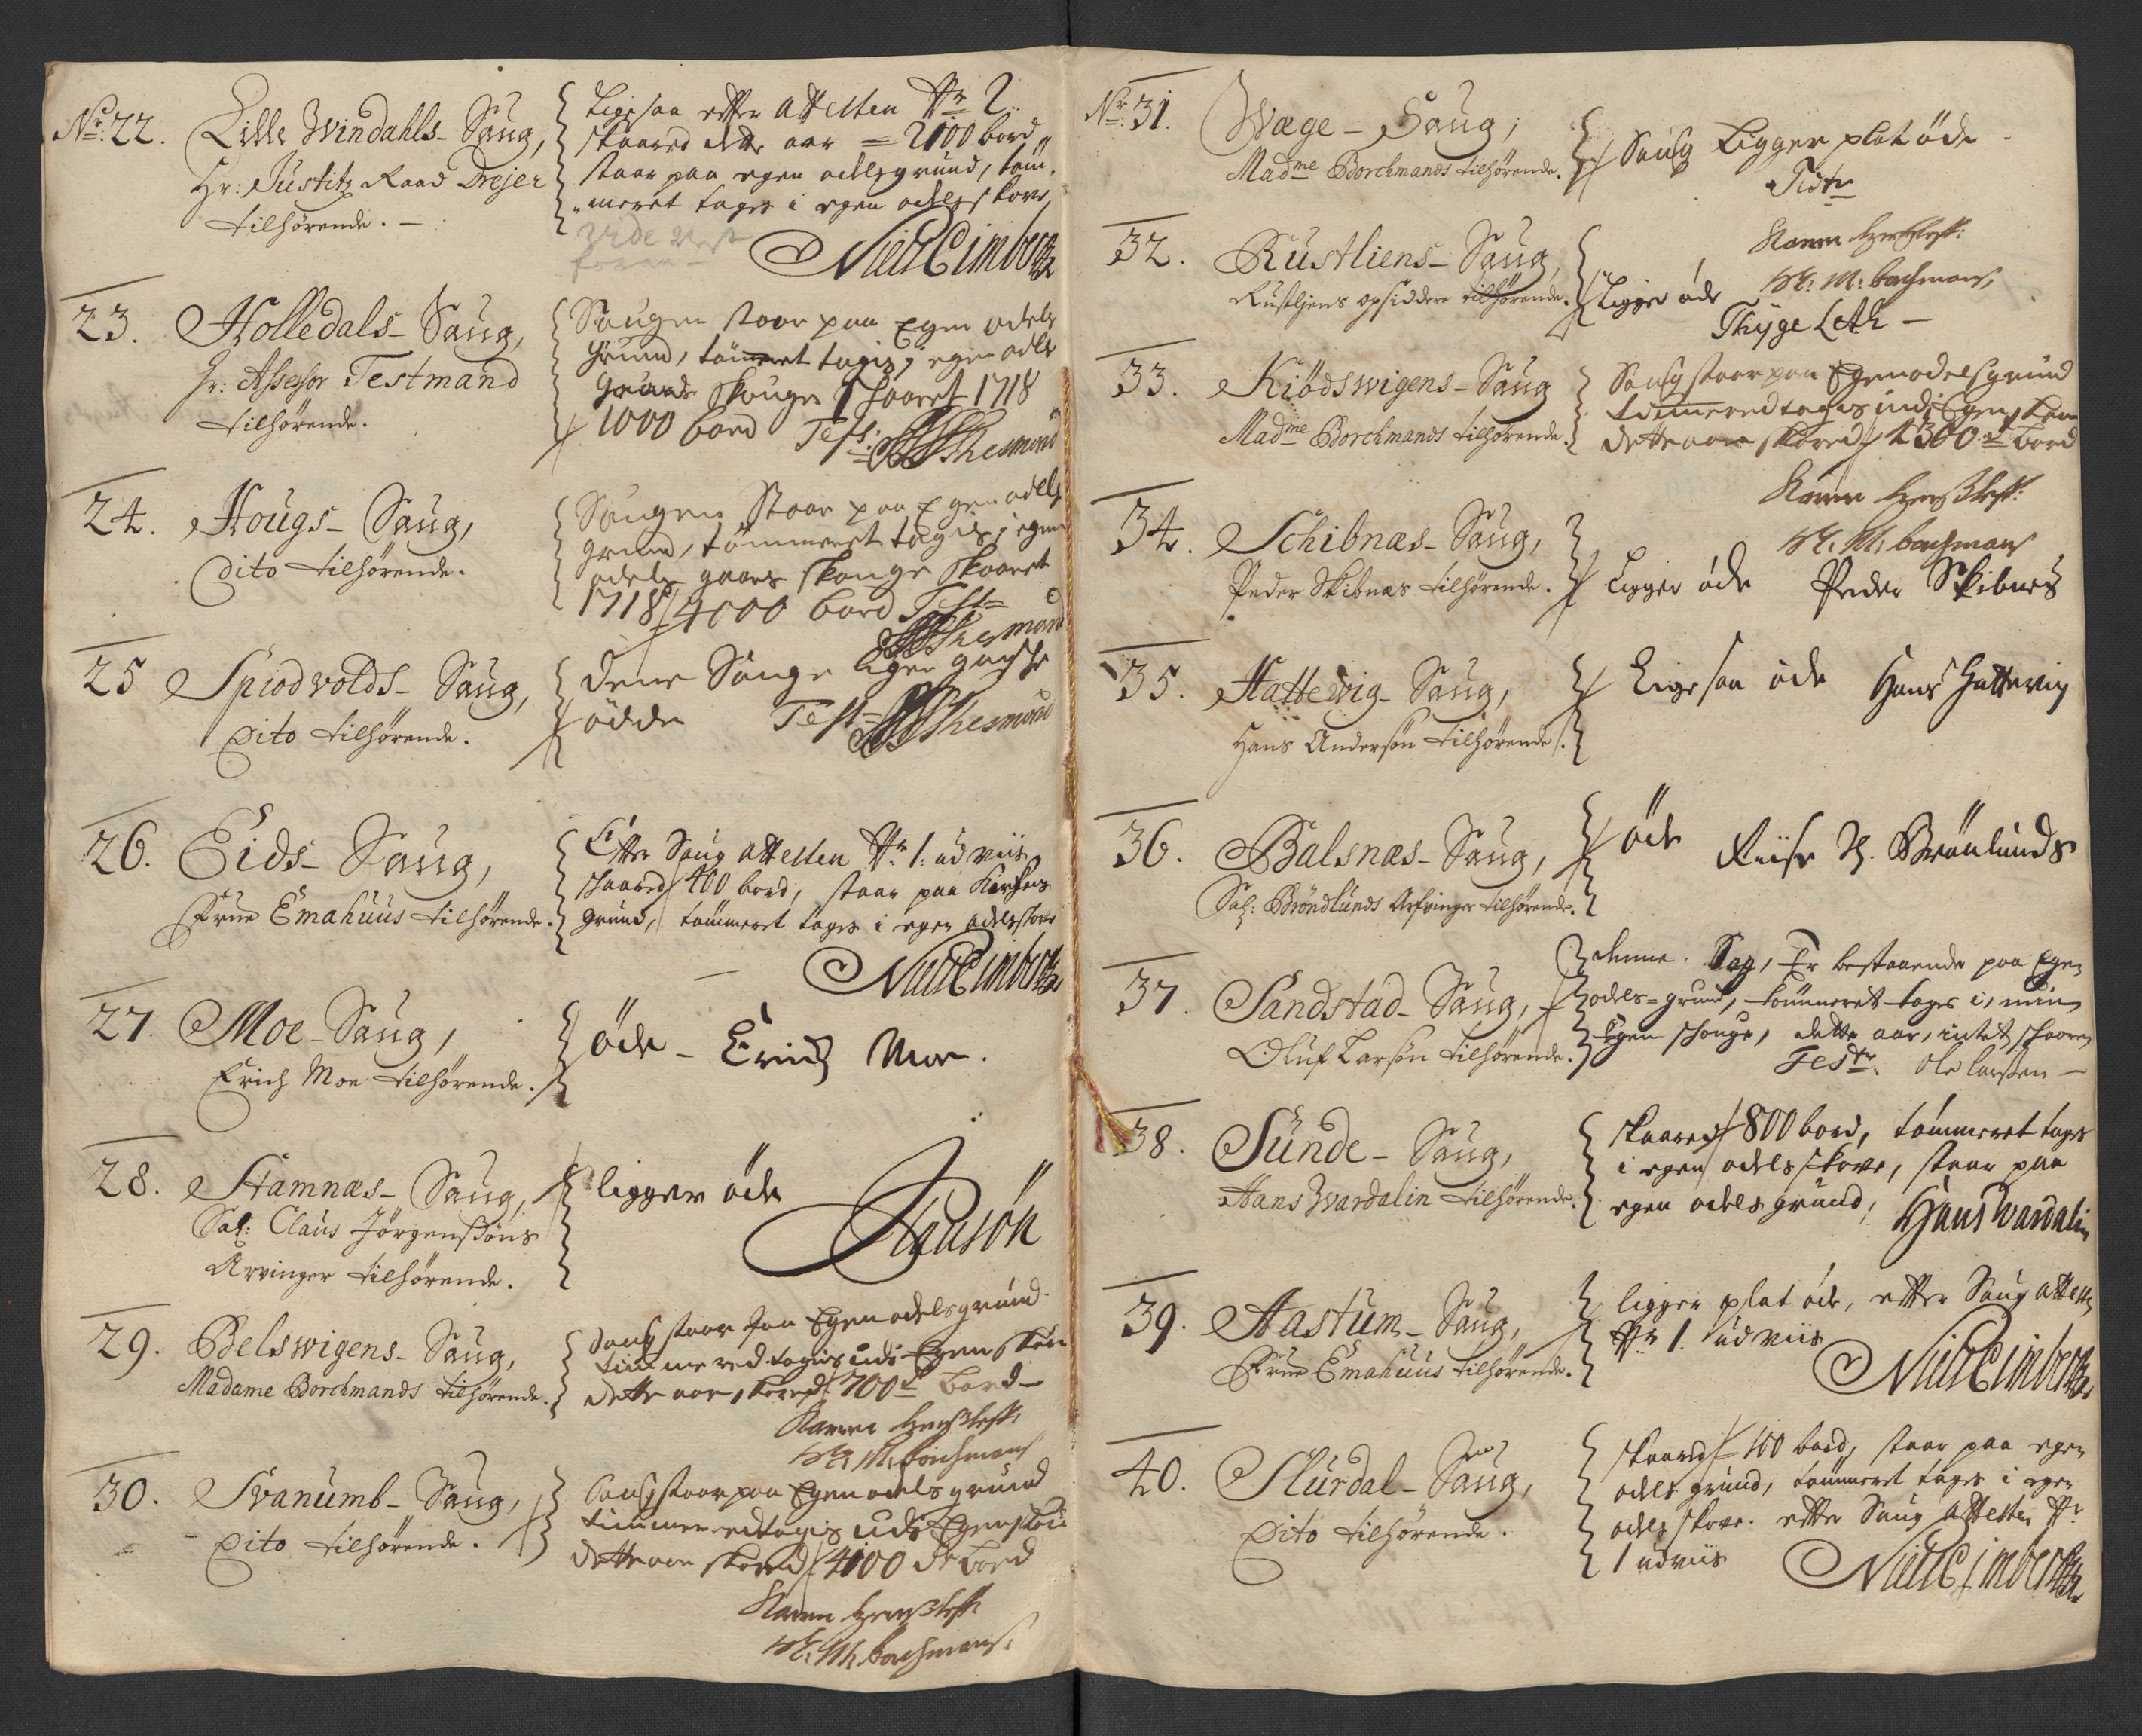 Nr: 22. Lille Windahls- Saug,
Hr: Justitz Raad Drejer
tilhørende. -
Ligesaa efter Attesten Nr 2
skaared dette aar = 2100 bord,
staar paa egen odelsgrund, töm,
meret tages i egen odelsskove,
vide
foran
Niels Cimber
23. Holledals- Saug,
Hr: Assessor Testmand
tilhørende.
Saugen staar paa Egen odels
Grund, tömmeret tagis i egen odels
Gaards skouge skaaret 1718
1000 bord Test:
Thesmand
24. Hougs- Saug,
Dito tilhørende.
Saugen Staar paa Egen odels
grund, tömmeret tagis i egen
odels gaars skouge skaaret
1718 / 4000 bord Test
Thesmand
25 Spiodvolds- Saug,
Dito tilhørende.
Dene Sauge liger gandsche
ödde Test
Thesmand
26. Eids- Saug,
Frue Emahuus tilhørende.
Efter Saug Attesten Nr. 1. udviis
skaared / 400 bord, staar paa Kirkens
grund, tömmeret tages i egen odelsskove
Niels Cimber
27. Moe- Saug,
Erich Moe tilhørende.
öde - Erich Moe.
28. Stamnæs- Saug,
Sal: Claus Jørgensøns
Arvinger tilhørende.
ligger öde
29. Belswigens- Saug,
Madame Borchmands tilhørende.
Saug staar paa Egen odelsgrund
timmered tagis udi Egen skou
dette aar skored / 700 bord -
Karen
Sl: M: borchmans
30. Svanumb- Saug,
Dito tilhørende.
Saug staar paa Egen odels grund
timmered tagis udi Egen skou
dette aar skored / 4100 bord
Karen
Sl: M: borchmans
Nr: 31. Wæge- Saug,
Madme Borchmands tilhørende.
Saug Ligger plat öde -
Test
Karen
Sl: M: borchmans,
32. Rustliens- Saug,
Rustliens opsiddere tilhørende.
Ligger öde
Thyge Leth -
33. Kiødswigens- Saug
Madme Borchmands tilhørende.
Saug staar paa Egen odelsgrund
timmered tagis udi Egen skou
dette aar skored / 2300 bord
Karen
Sl: M: borchmans
34. Schibnæs- Saug,
Peder Skibnæs tilhørende.
Ligger öde Peder Skibnes
35. Hattewig- Saug,
Hans Andersøn tilhørende.
Ligesaa öde Hans Hattewig
36. Balsnæs- Saug,
Sal: Brøndlunds Arfvinger tilhørende.
öde Brönlunds
37. Sandstad- Saug,
Oluf Larsøn tilhørende.
denne Sag, Er bestaaende paa Egen
odels-grund, tömmeret tages i, min
Egen schouge, dette aar, intet schaaren
Test. Ole Larssen -
38. Sunde- Saug,
Hans Wardalin tilhørende.
skaared / 800 bord, tömmeret tages
i egen odelsskove, staar paa
egen odelsgrund,
Hans Wardalin
39. Hastum- Saug,
Frue Emahuus tilhørende.
ligger plat öde, efter Saug Attesten
Nr 1. udviis
Niels Cimber
40. Slurdal- Saug,
Dito tilhørende.
skaared / 100 bord, staar paa egen
odelsgrund, tömmeret tages i egen
odels skove. efter Saug Attesten Nr
1 udviis
Niels Cimber